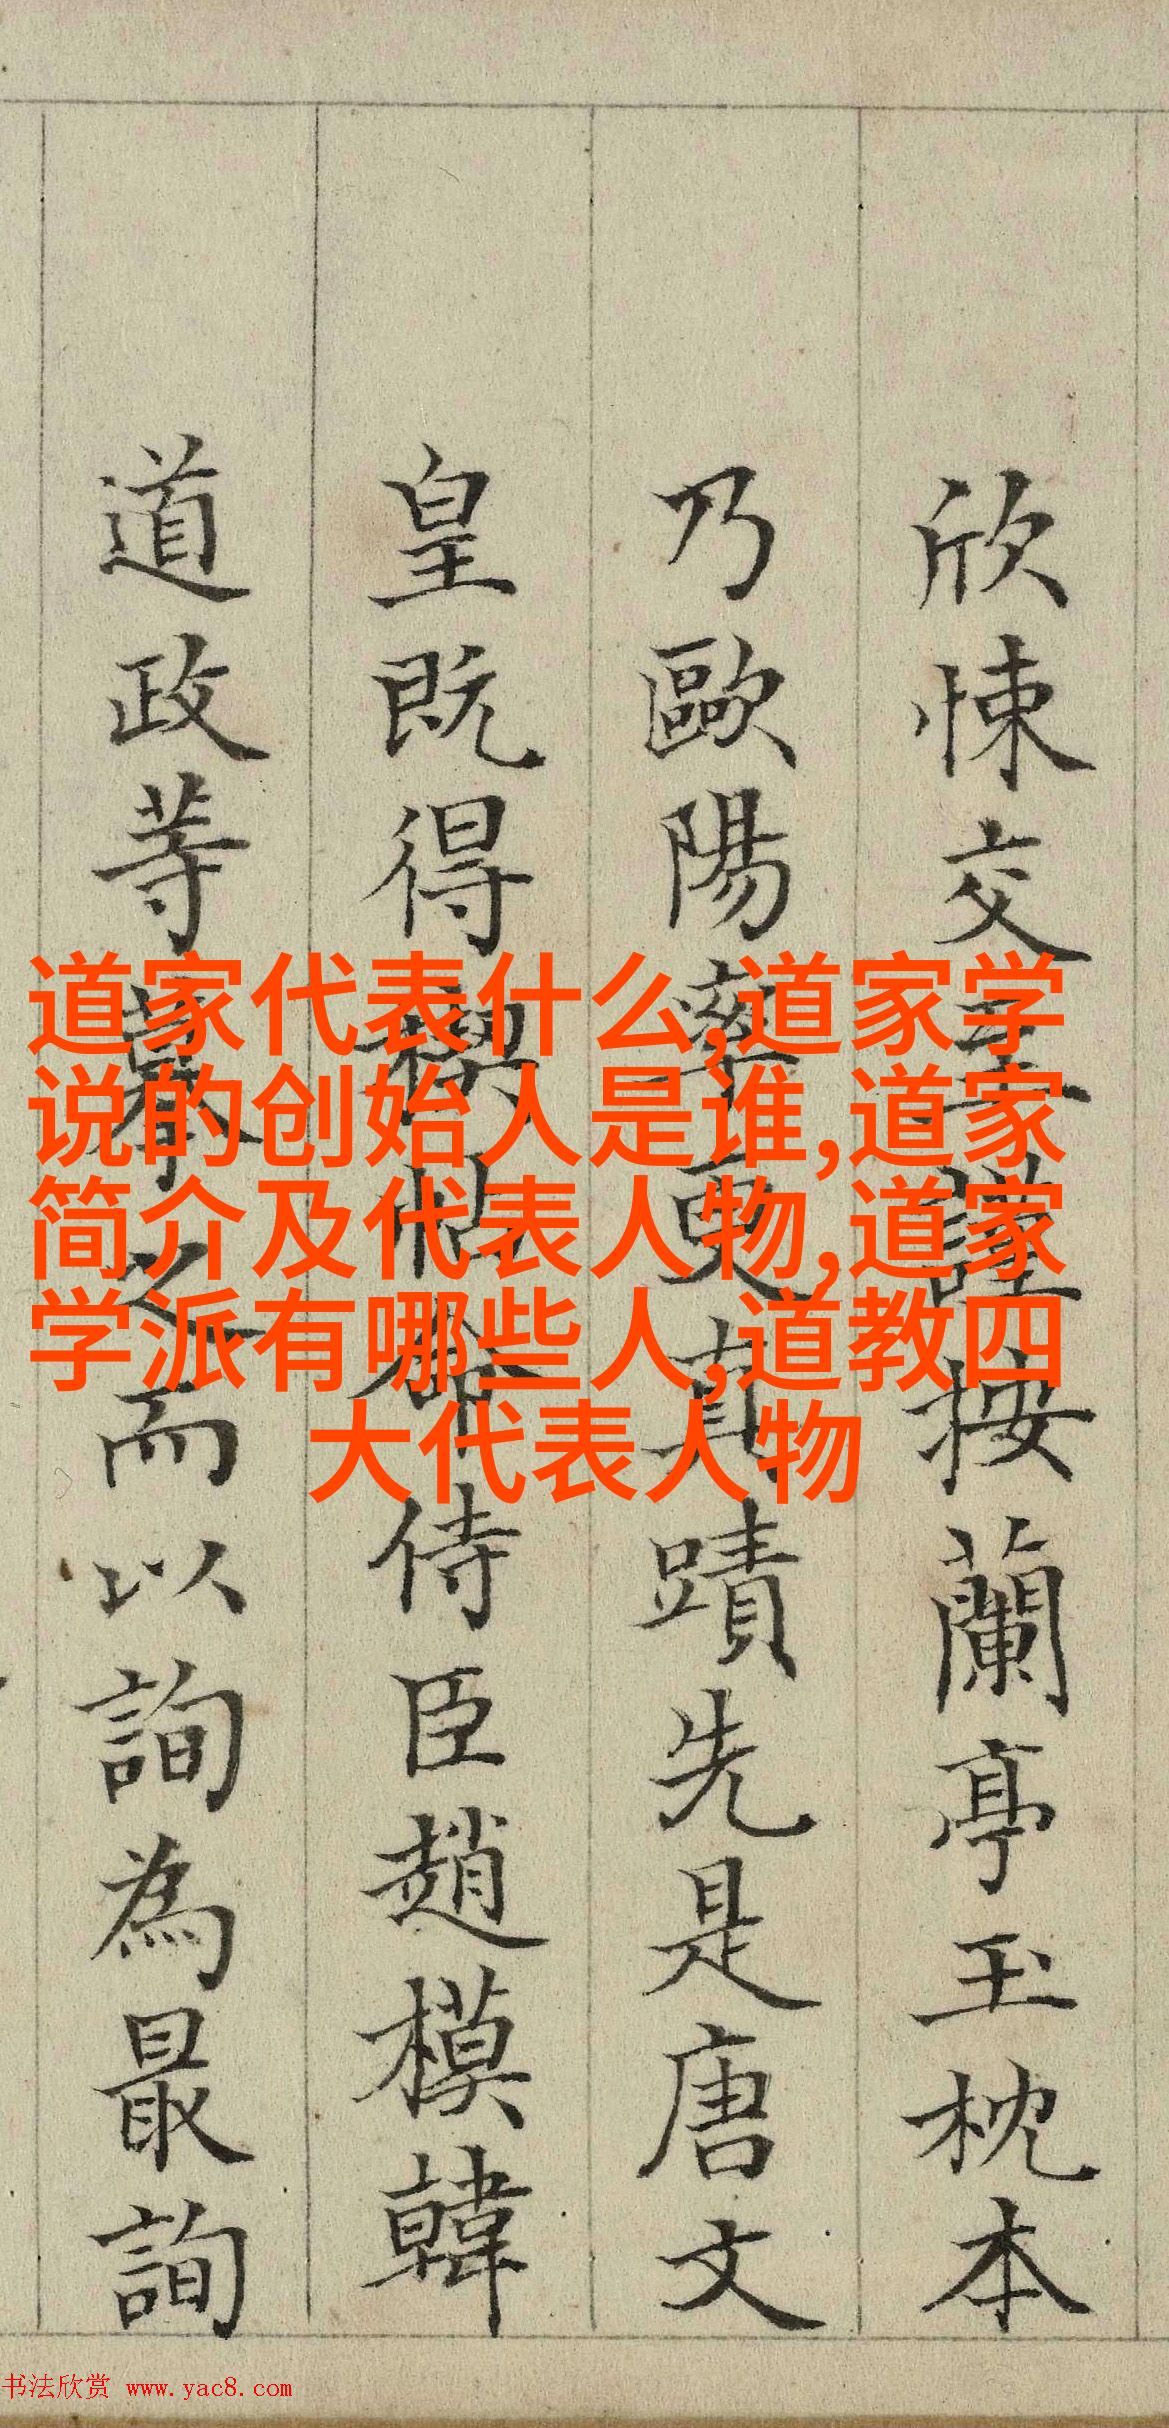 欣悚交至謹按蘭亭玉枕本
乃歐陽率更真蹟先是唐文
皇既得禊帖命侍臣趙模韓
道政等摹之而以詢為最詢
道家代表什么,道家学
说的创始人是谁,道家
简介及代表人物,道家
学派有哪些人,道教四
大代表人物
书法欣赏 www.yac8.com